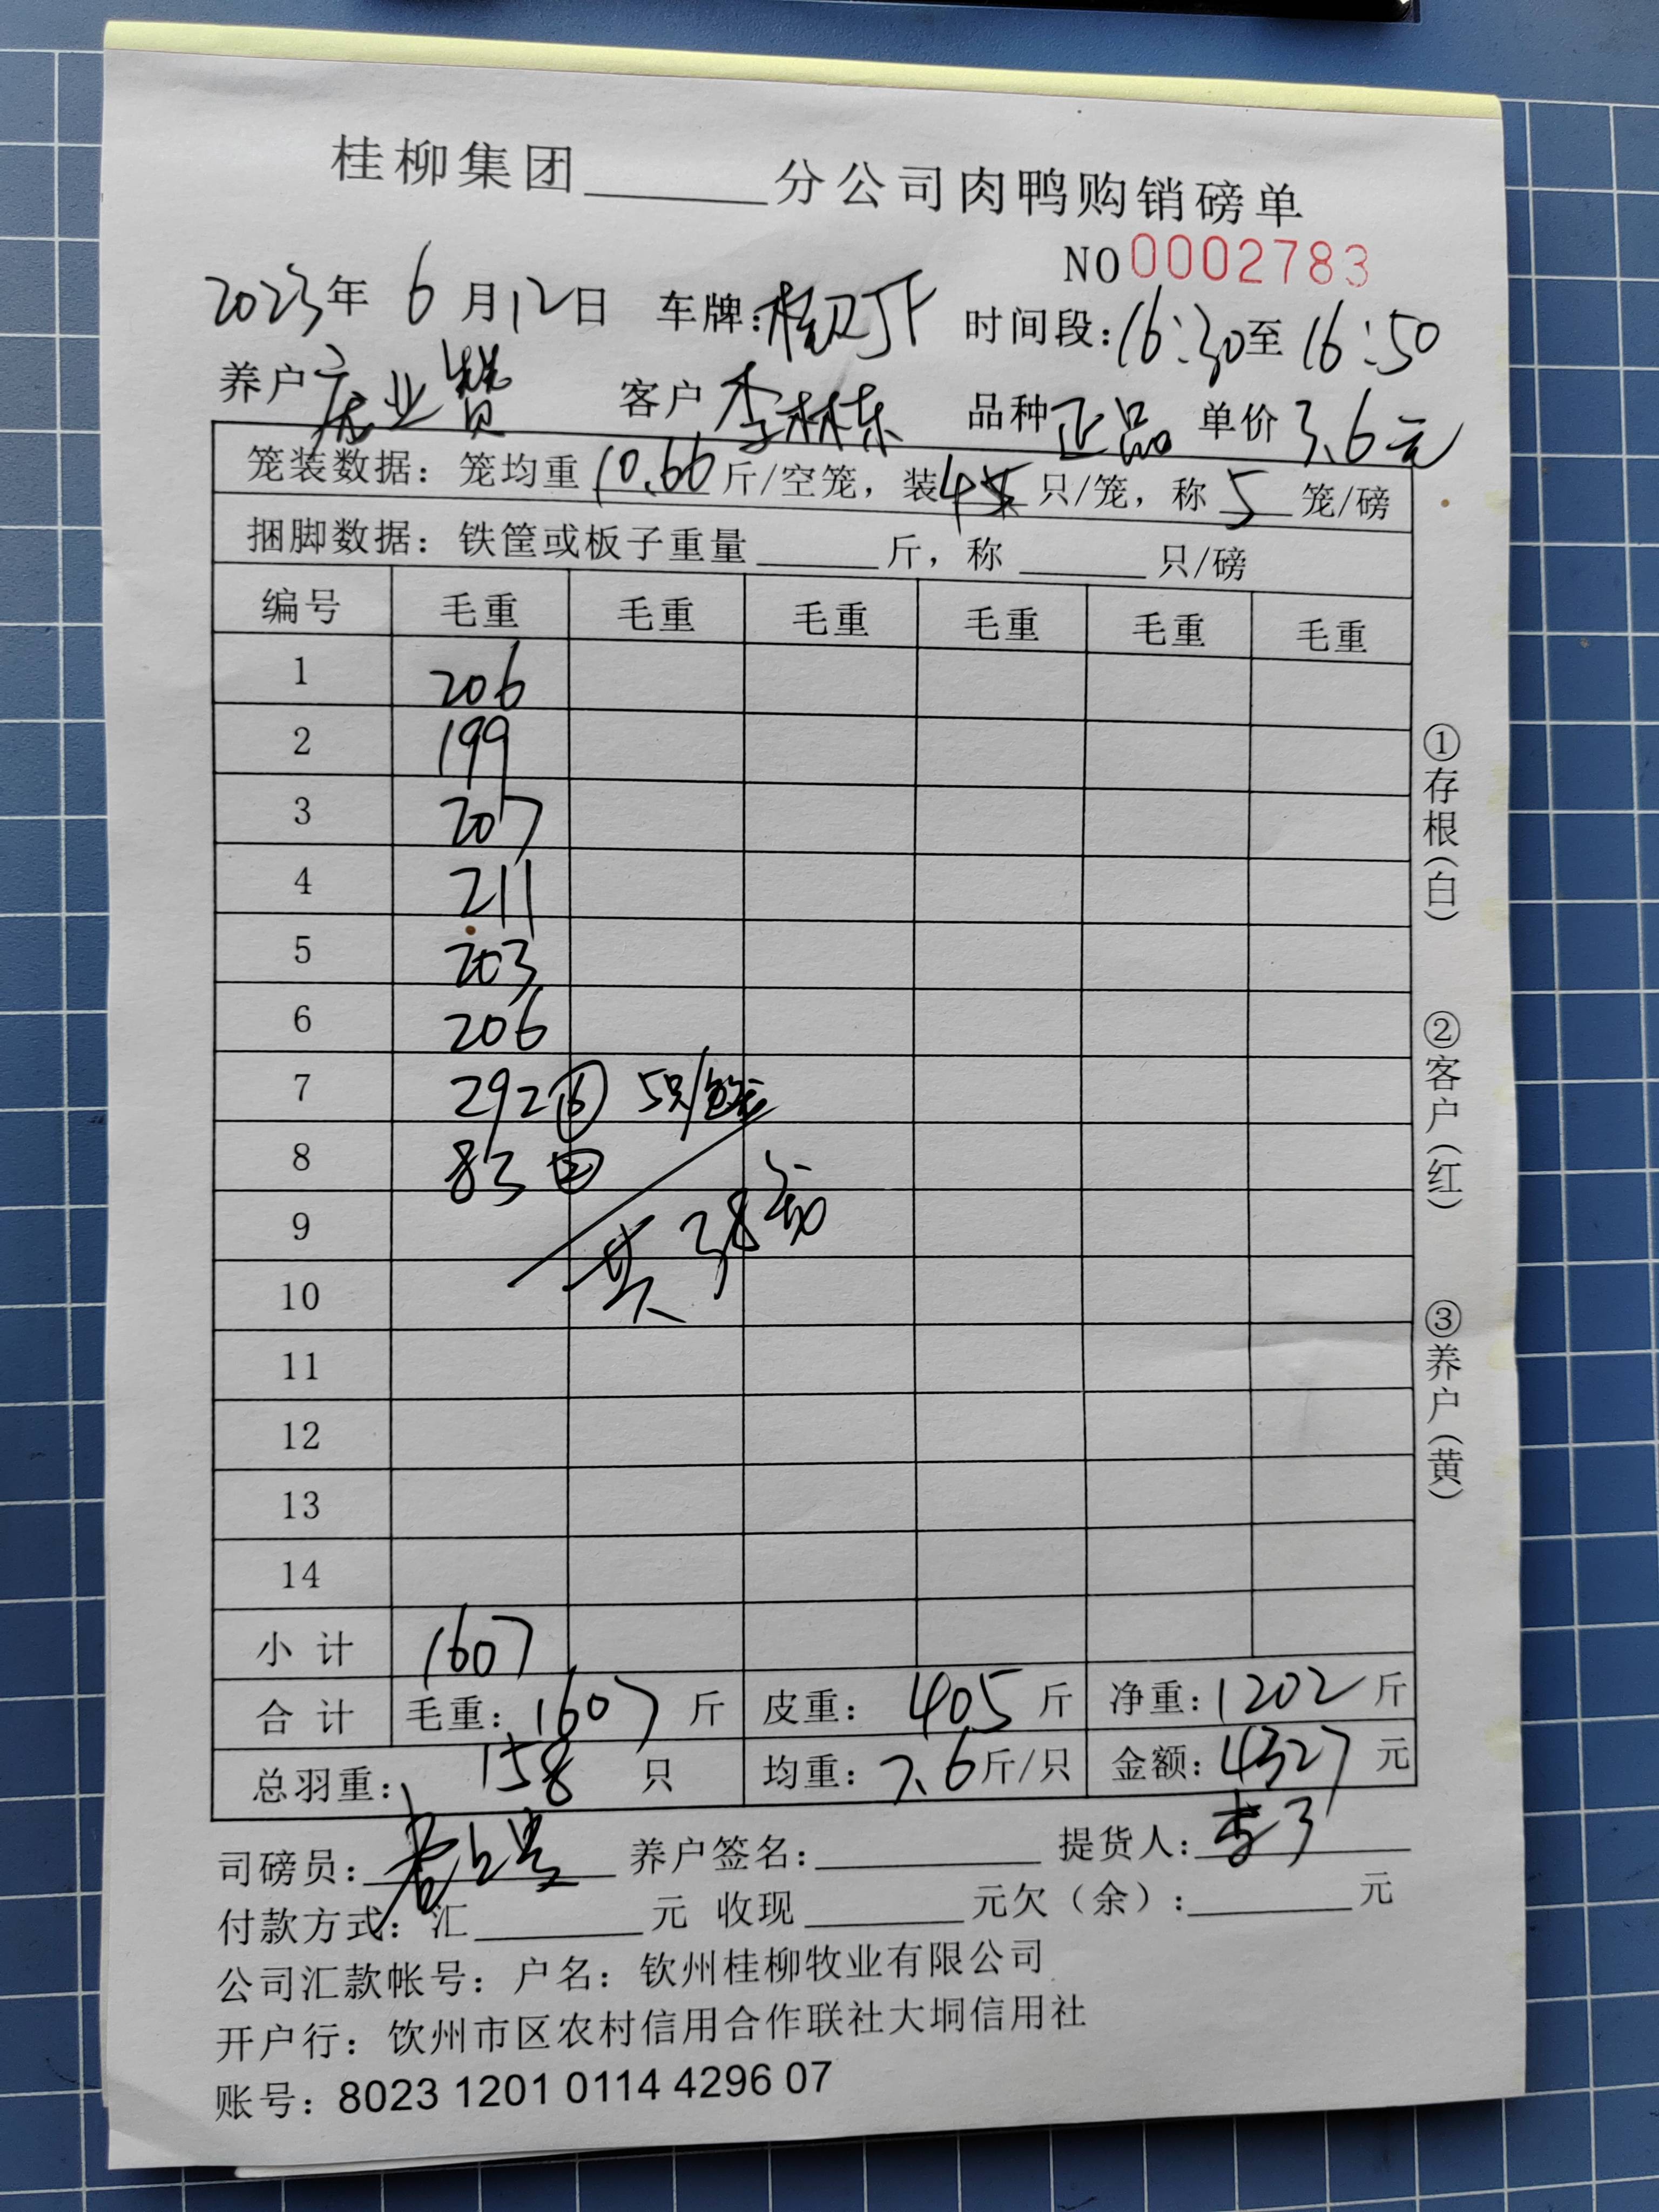 桂柳集团______分公司肉鸭购销磅单
NO 0002783
2023年 6 月12日 车牌: 时间段:16:30至 16:50
养户 业 客户 李林东 品种 正品 单价 3.6元
笼装数据: 笼均重 10.66 斤/空笼, 装 4 只/笼, 称 5 笼/磅
捆脚数据: 铁筐或板子重量______斤, 称______只/磅
编号 毛重 毛重 毛重 毛重 毛重 毛重
1 206
2 199
3 207
4 211
5 203
6 206
7 292 ⑥ 5只/笼
8 83 ②
9 共 38
10
11
12
13
14
小 计 1607
合 计 毛重: 1607 斤 皮重: 405 斤 净重: 1202 斤
总羽重: 158 只 均重: 7.6 斤/只 金额: 4327 元
司磅员: 养户签名:______ 提货人: 李
付款方式: 汇______元 收现______元欠(余):______元
公司汇款帐号: 户名: 钦州桂柳牧业有限公司
开户行: 饮州市区农村信用合作联社大垌信用社
账号: 8023 1201 0114 4296 07
①存根(白)
②客户(红)
③养户(黄)